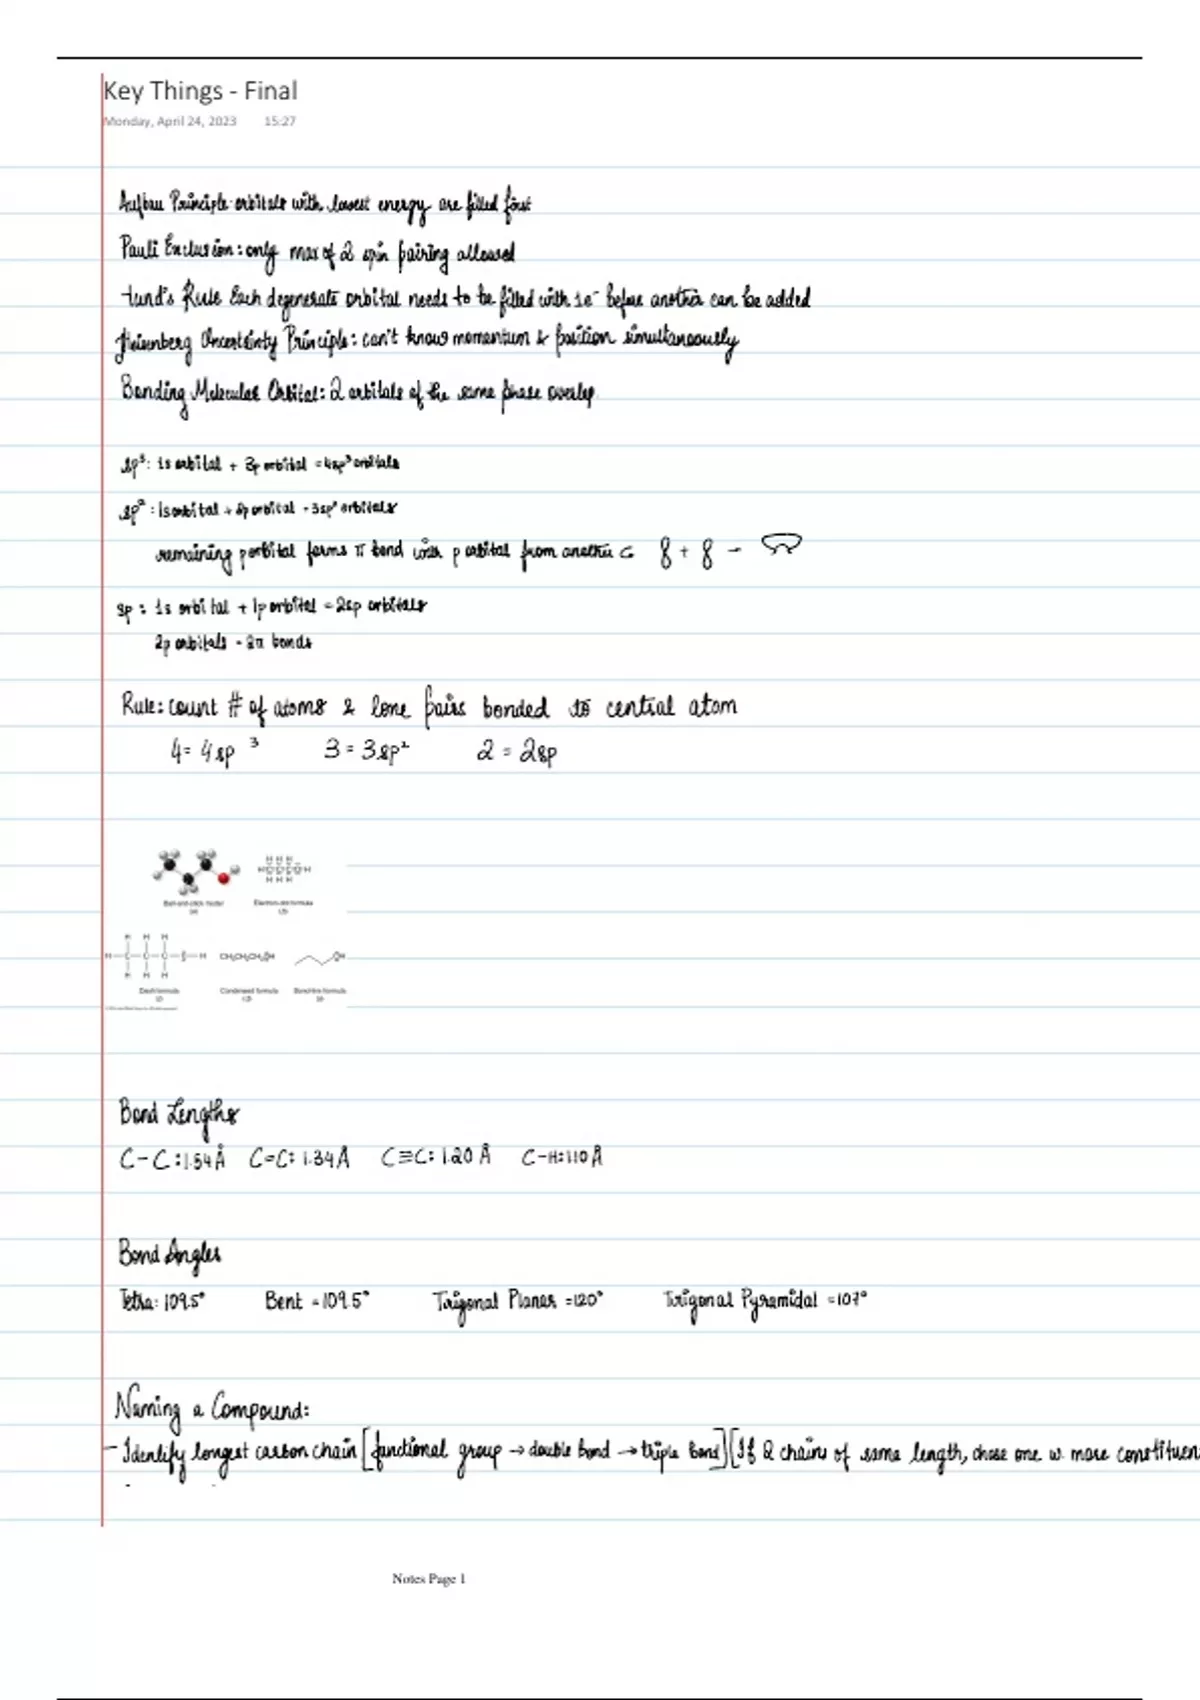 Key Things - Final
Monday, April 24, 2023 15:27
Aufbau Principle: orbitals with lowest energy are filled first
Pauli Exclusion: only max of 2 spin pairing allowed
Hund's Rule Each degenerate orbital needs to be filled with 1e⁻ before another can be added
Heisenberg Uncertainty Principle: can't know momentum & position simultaneously
Bonding Molecular Orbital: 2 orbitals of the same phase overlap
sp³: 1s orbital + 3p orbital = 4sp³ orbitals
sp² : 1s orbital + 2p orbital = 3sp² orbitals
remaining p orbital forms π bond with p orbital from another C
sp : 1s orbital + 1p orbital = 2sp orbitals
2p orbitals - 2π bonds
Rule: count # of atoms & lone pairs bonded to central atom
4 = 4sp³ 3 = 3sp² 2 = 2sp
Ball-and-stick model Electron-dot formula
Dash formula Condensed formula Bond-line formula
Bond Lengths
C-C: 1.54Å C=C: 1.34Å C≡C: 1.20Å C-H: 110Å
Bond Angles
Tetra: 109.5° Bent = 109.5° Trigonal Planar = 120° Trigonal Pyramidal = 107°
Naming a Compound:
- Identify longest carbon chain [functional group → double bond → triple bond] [If 2 chains of same length, chose one w. more constituen
Notes Page 1